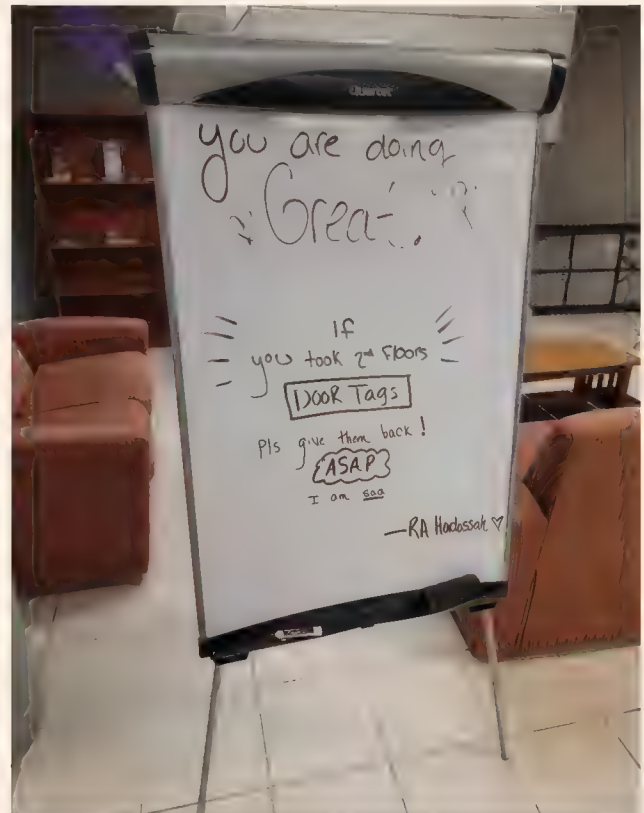 you are doing
Great
If
you took 2nd Floors
DOOR Tags
Pls give them back!
ASAP
I am saa
—RA Hadassah ♡